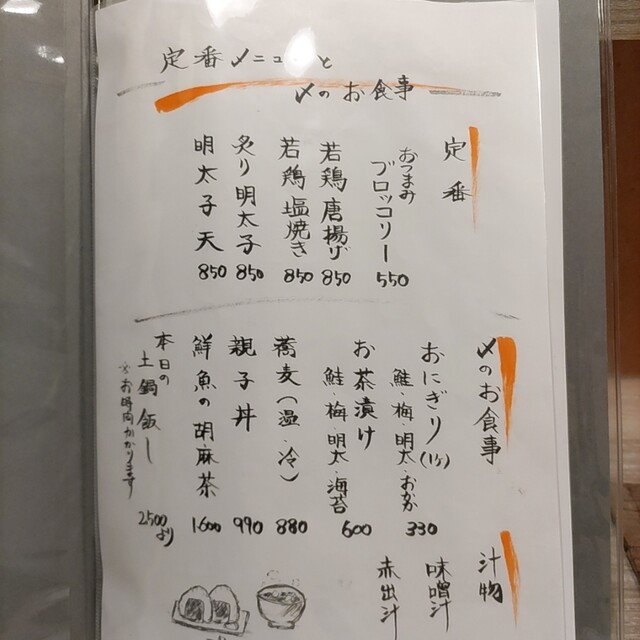 定番メニューと
〆のお食事
定番
おつまみブロッコリー 550
若鶏唐揚げ 850
若鶏塩焼き 850
炙り明太子 850
明太子天 850
〆のお食事
おにぎり(1ヶ) 330
鮭・梅・明太・おかか
お茶漬け 600
鮭・梅・明太・海苔
蕎麦(温・冷) 880
親子丼 990
鮮魚の胡麻茶 1600
本日の土鍋飯し 2500より
※お時間かかります
汁物
味噌汁
赤出汁